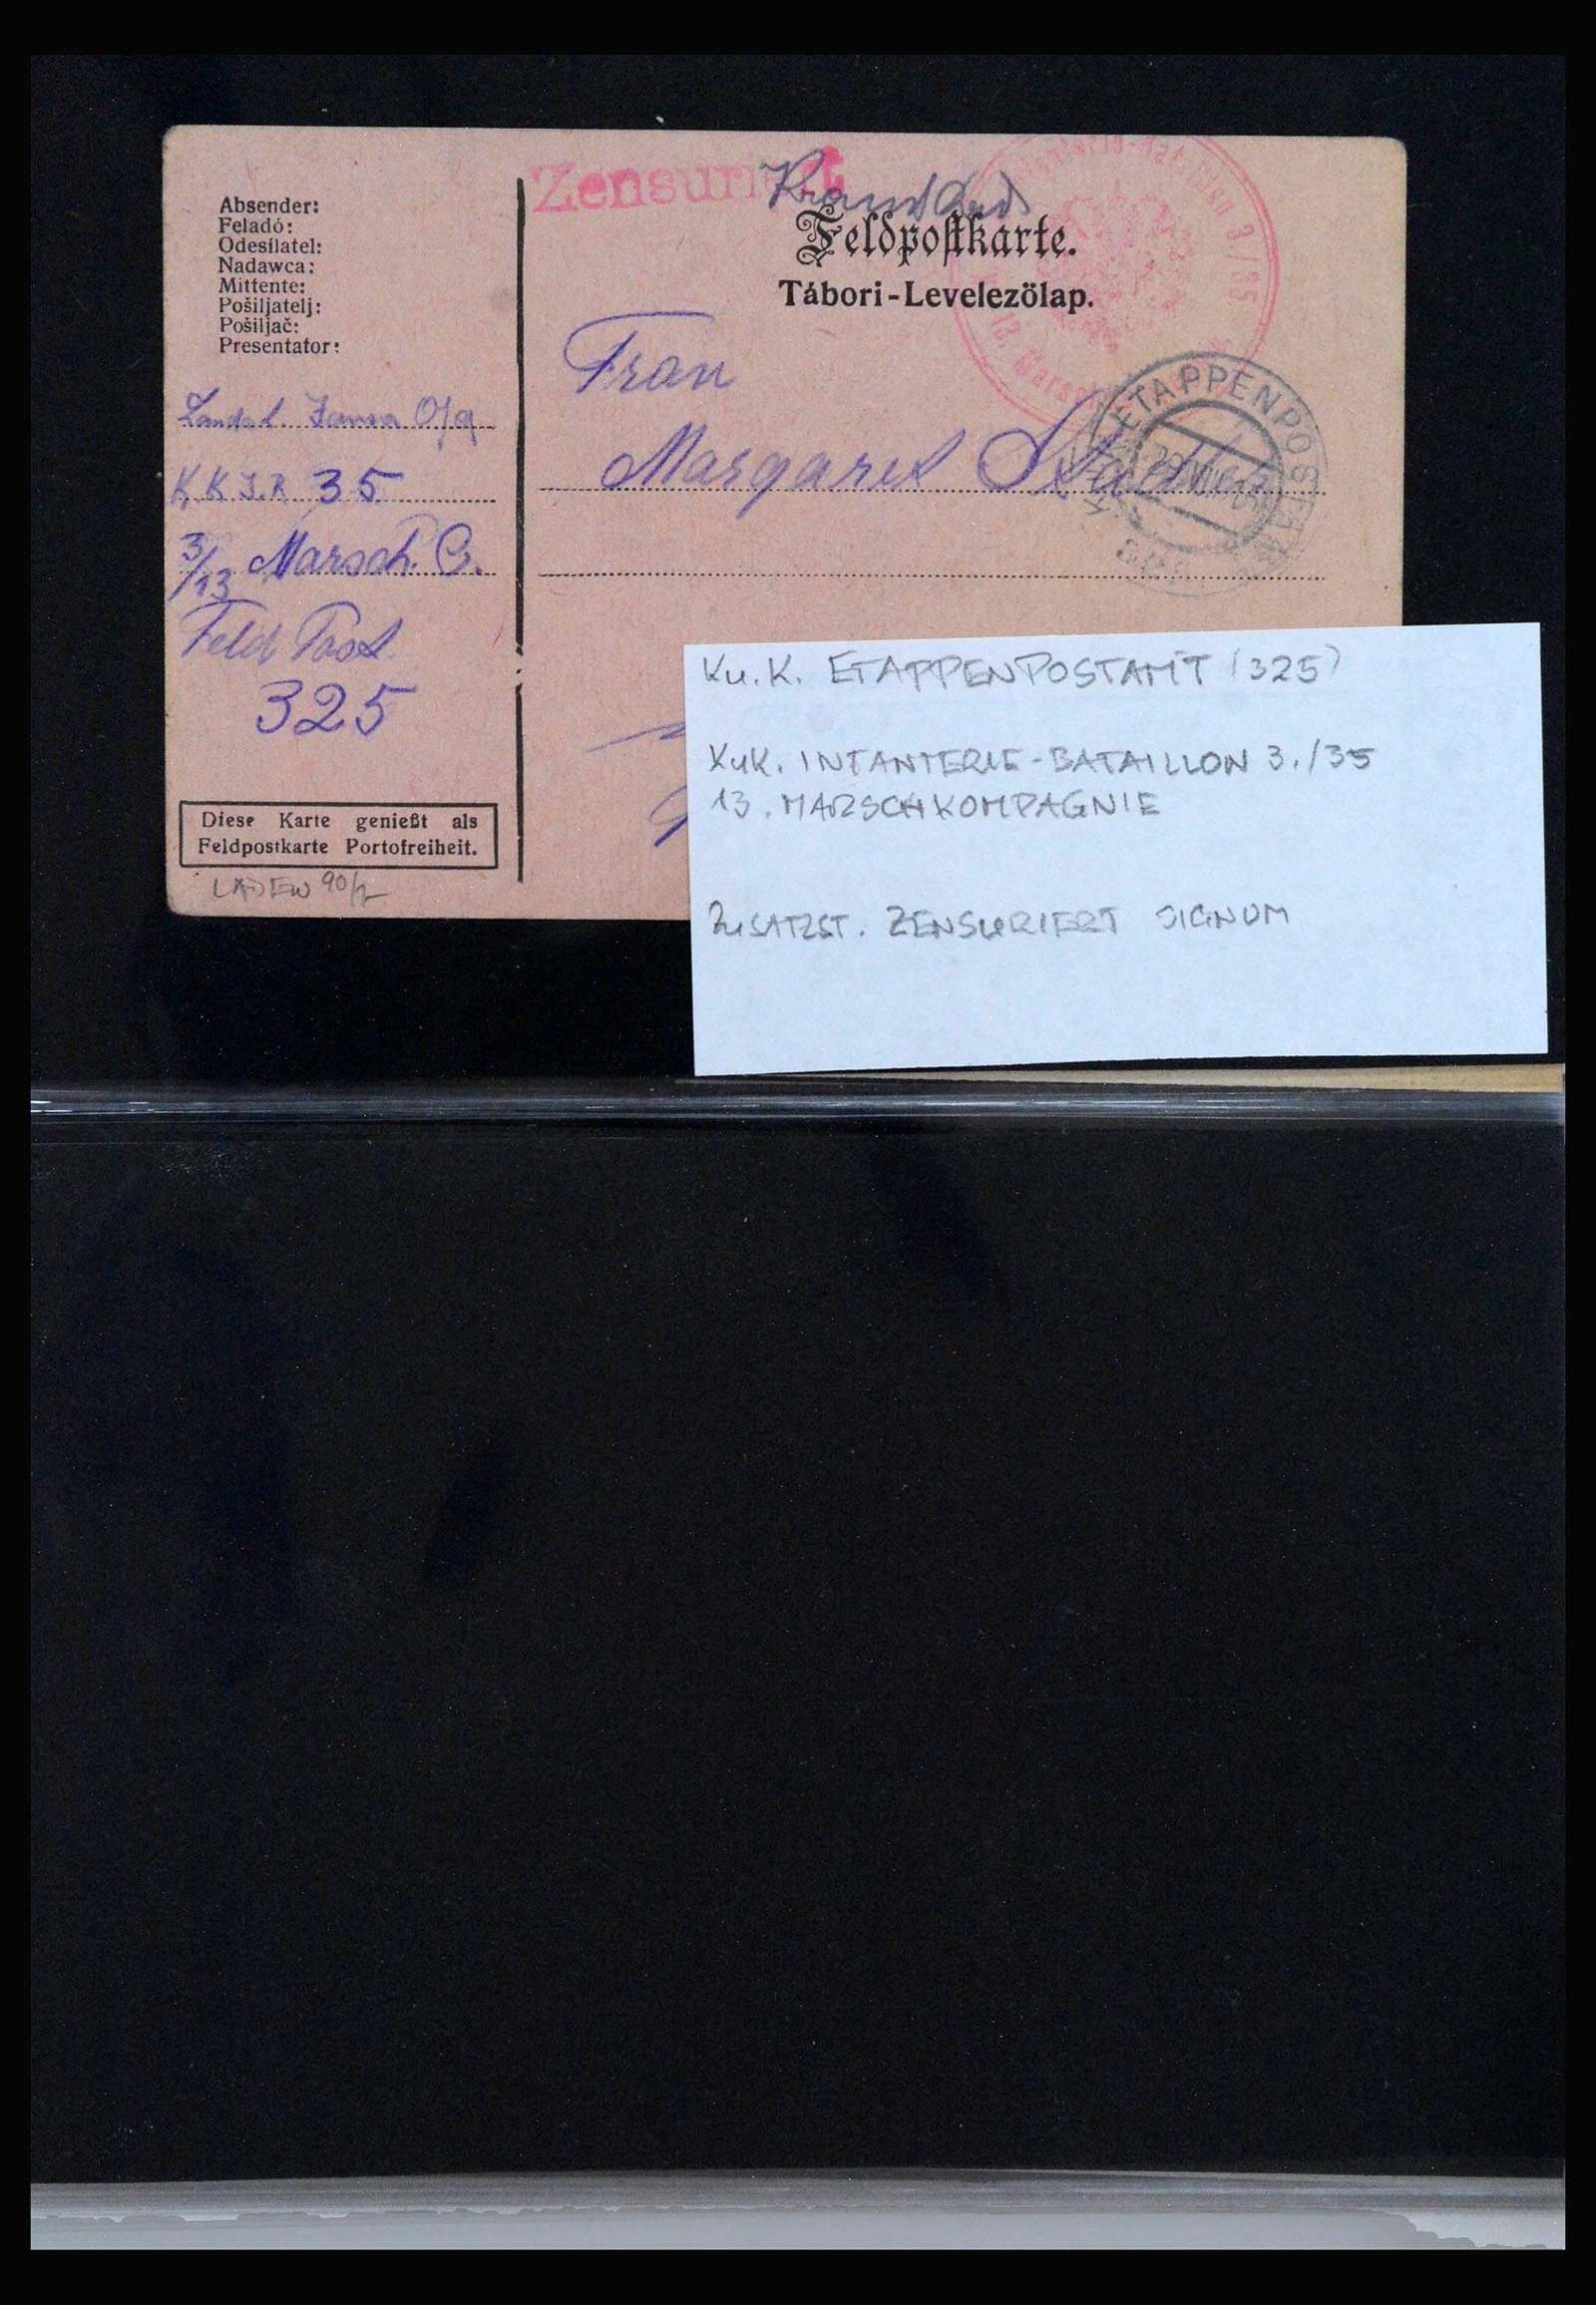 Absender:
Feladó:
Odesílatel:
Nadawca:
Mittente:
Pošiljatelj:
Pošiljač:
Presentator:
K K I.R. 35
3/13 Marsch. C.
Feld Post
325
Diese Karte genießt als
Feldpostkarte Portofreiheit.
LADEN 90/2
Zensuriert
Feldpostkarte.
Tábori-Levelezölap.
Frau
Margaret
Infanterie-Bataillon 3/35
13. Marsch
ETAPPENPOSTAMT
K.u.K. ETAPPENPOSTAMT (325)
KuK. INFANTERIE-BATAILLON 3./35
13. MARSCHKOMPAGNIE
ZUSATZST. ZENSURIERT SIGNUM